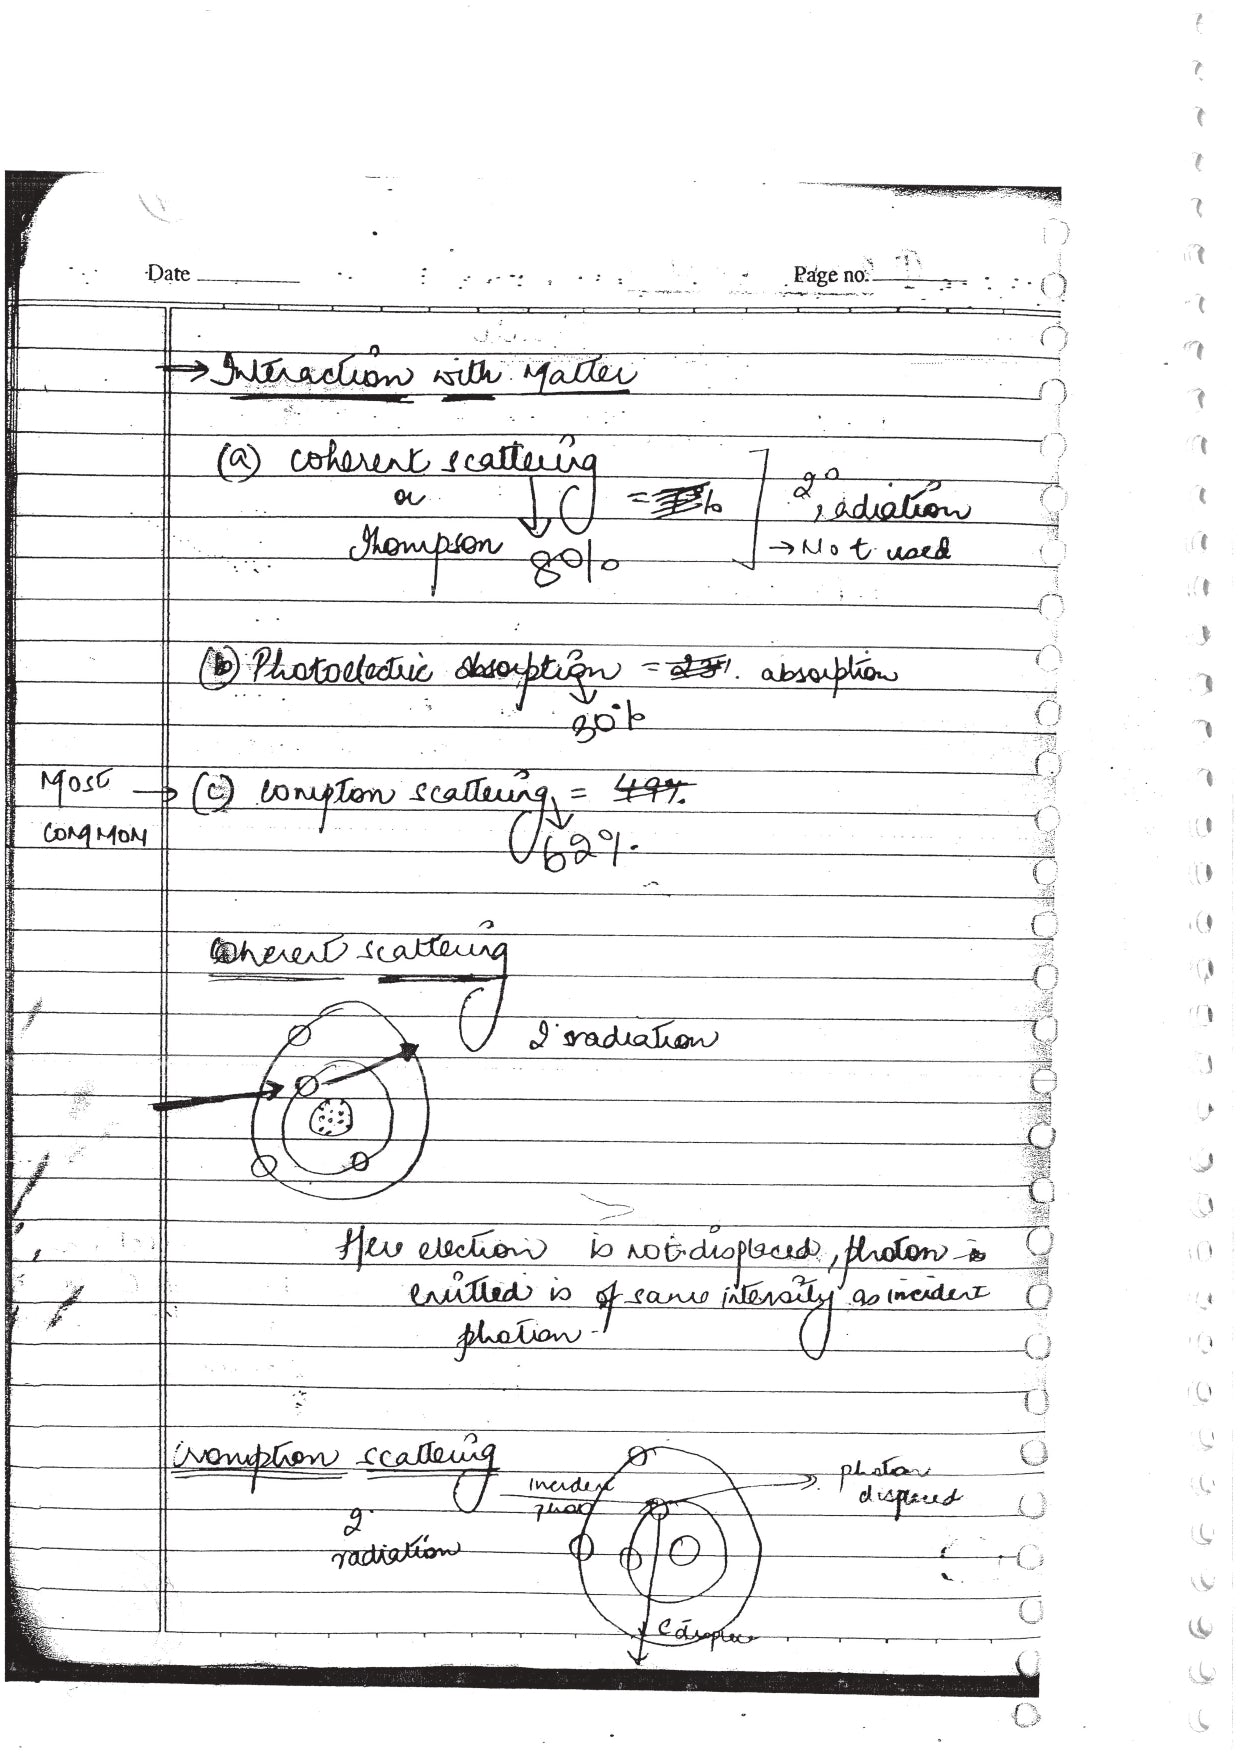 Date
Page no.
→ Interaction with Matter
(a) coherent scattering
or
Thompson 8%
2° radiation
→ Not used
(b) Photoelectric absorption = 23% absorption
30%
Most common → (c) compton scattering = 49%
62%
Coherent scattering
2° radiation
Here electron is not displaced, photon is
emitted is of same intensity as incident
photon
Compton scattering
incident
photon
displaced
2°
radiation
e displace